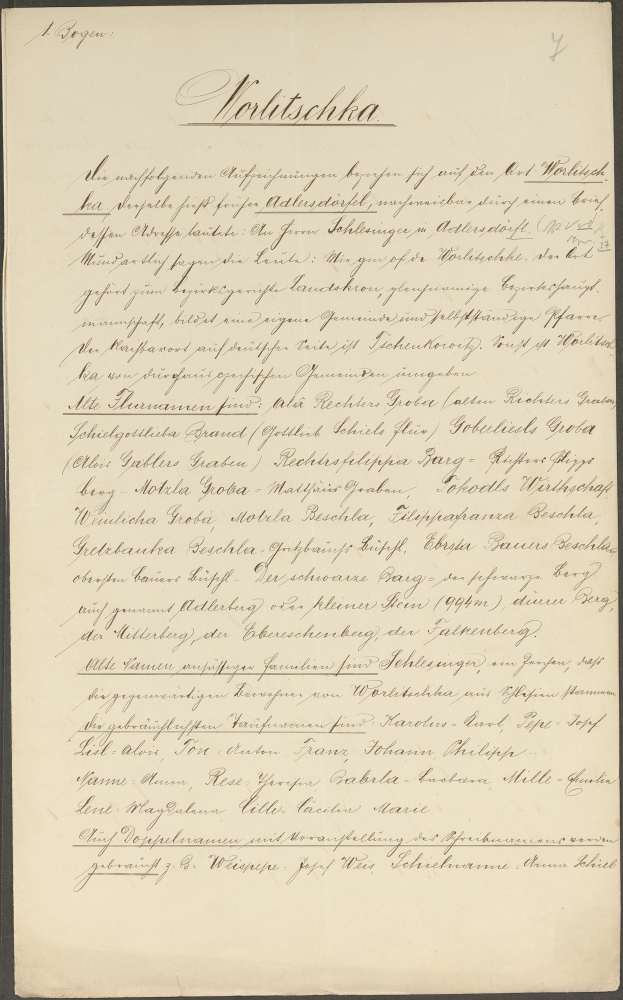 1. Bogen:
7
Worlitschka.
Die nachfolgenden Aufzeichnungen beziehen sich auf den Ort Worlitsch-
ka, derselbe hieß früher Adlersdörfel, nachweisbar durch einen Brief
dessen Adresse lautete: An Herrn Schlesinger in Adlersdörfl.
Mundartlich sagen die Leute: Mir gen of de Worlitschke. Der Ort
gehört zum Bezirksgerichte Landskron, gleichnamige Bezirkshaupt-
mannschaft, bildet eine eigene Gemeinde und selbstständige Pfarre.
Der Nachbarort auf deutscher Seite ist Tschenkowitz. Sonst ist Worlitsch-
ka von durchaus czechischen Gemeinden umgeben
Alte Flurnamen sind: Ala Rechters Groba (alten Richters Graben)
Schielgottlieba Brand (Gottlieb Schiels Flur) Gobulisls Groba
(Alois Gablers Graben) Rechtersfilippa Barg = Richters Filipps
berg = Motzla Groba = Matthäus Graben, Tohodls Wirthschaft
Wenlicha Groba, Motzla Beschla, Filippafranza Beschla,
Gretzbauka Beschla = Büschl, Ebrsta Bauers Beschla =
obersten Bauers Büschl = Der schwarze Barg = der schwarze Berg
auch genannt Adlerberg oder kleiner Stein (994m) dürrer Berg,
der Mitterberg, der Ebereschenberg, der Falkenberg.
Alte Namen ansässiger Familien sind Schlesinger, ein Zeichen, daß
die gegenwärtigen Bewohner von Worlitschka aus Schlesien stammen
Die gebräuchlichsten Taufnamen sind: Karolus = Karl, Pepe = Josef
Lisl = Alois, Ton = Anton Franz, Johann, Philipp
Nanne = Anna, Rese = Theresia Babrla = Barbara, Mille = Emilie
Lene = Magdalena Cille = Cäcilia Marie
Auch Doppelnamen mit Voranstellung des Schreibnamens werden
gebraucht z. B. Weispepe = Josef Weis, Schielnanne = Anna Schiel